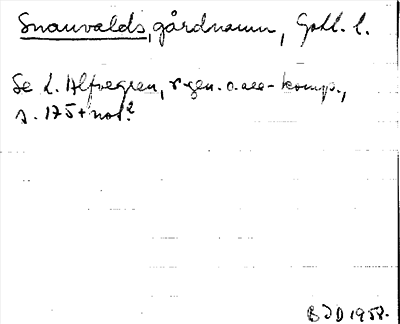 Snauvalds, gårdnamn, Gotl. l.
Se L. Alfvegren, r-gen. o. ae-komp.,
s. 175 + not 2
BJD 1958.